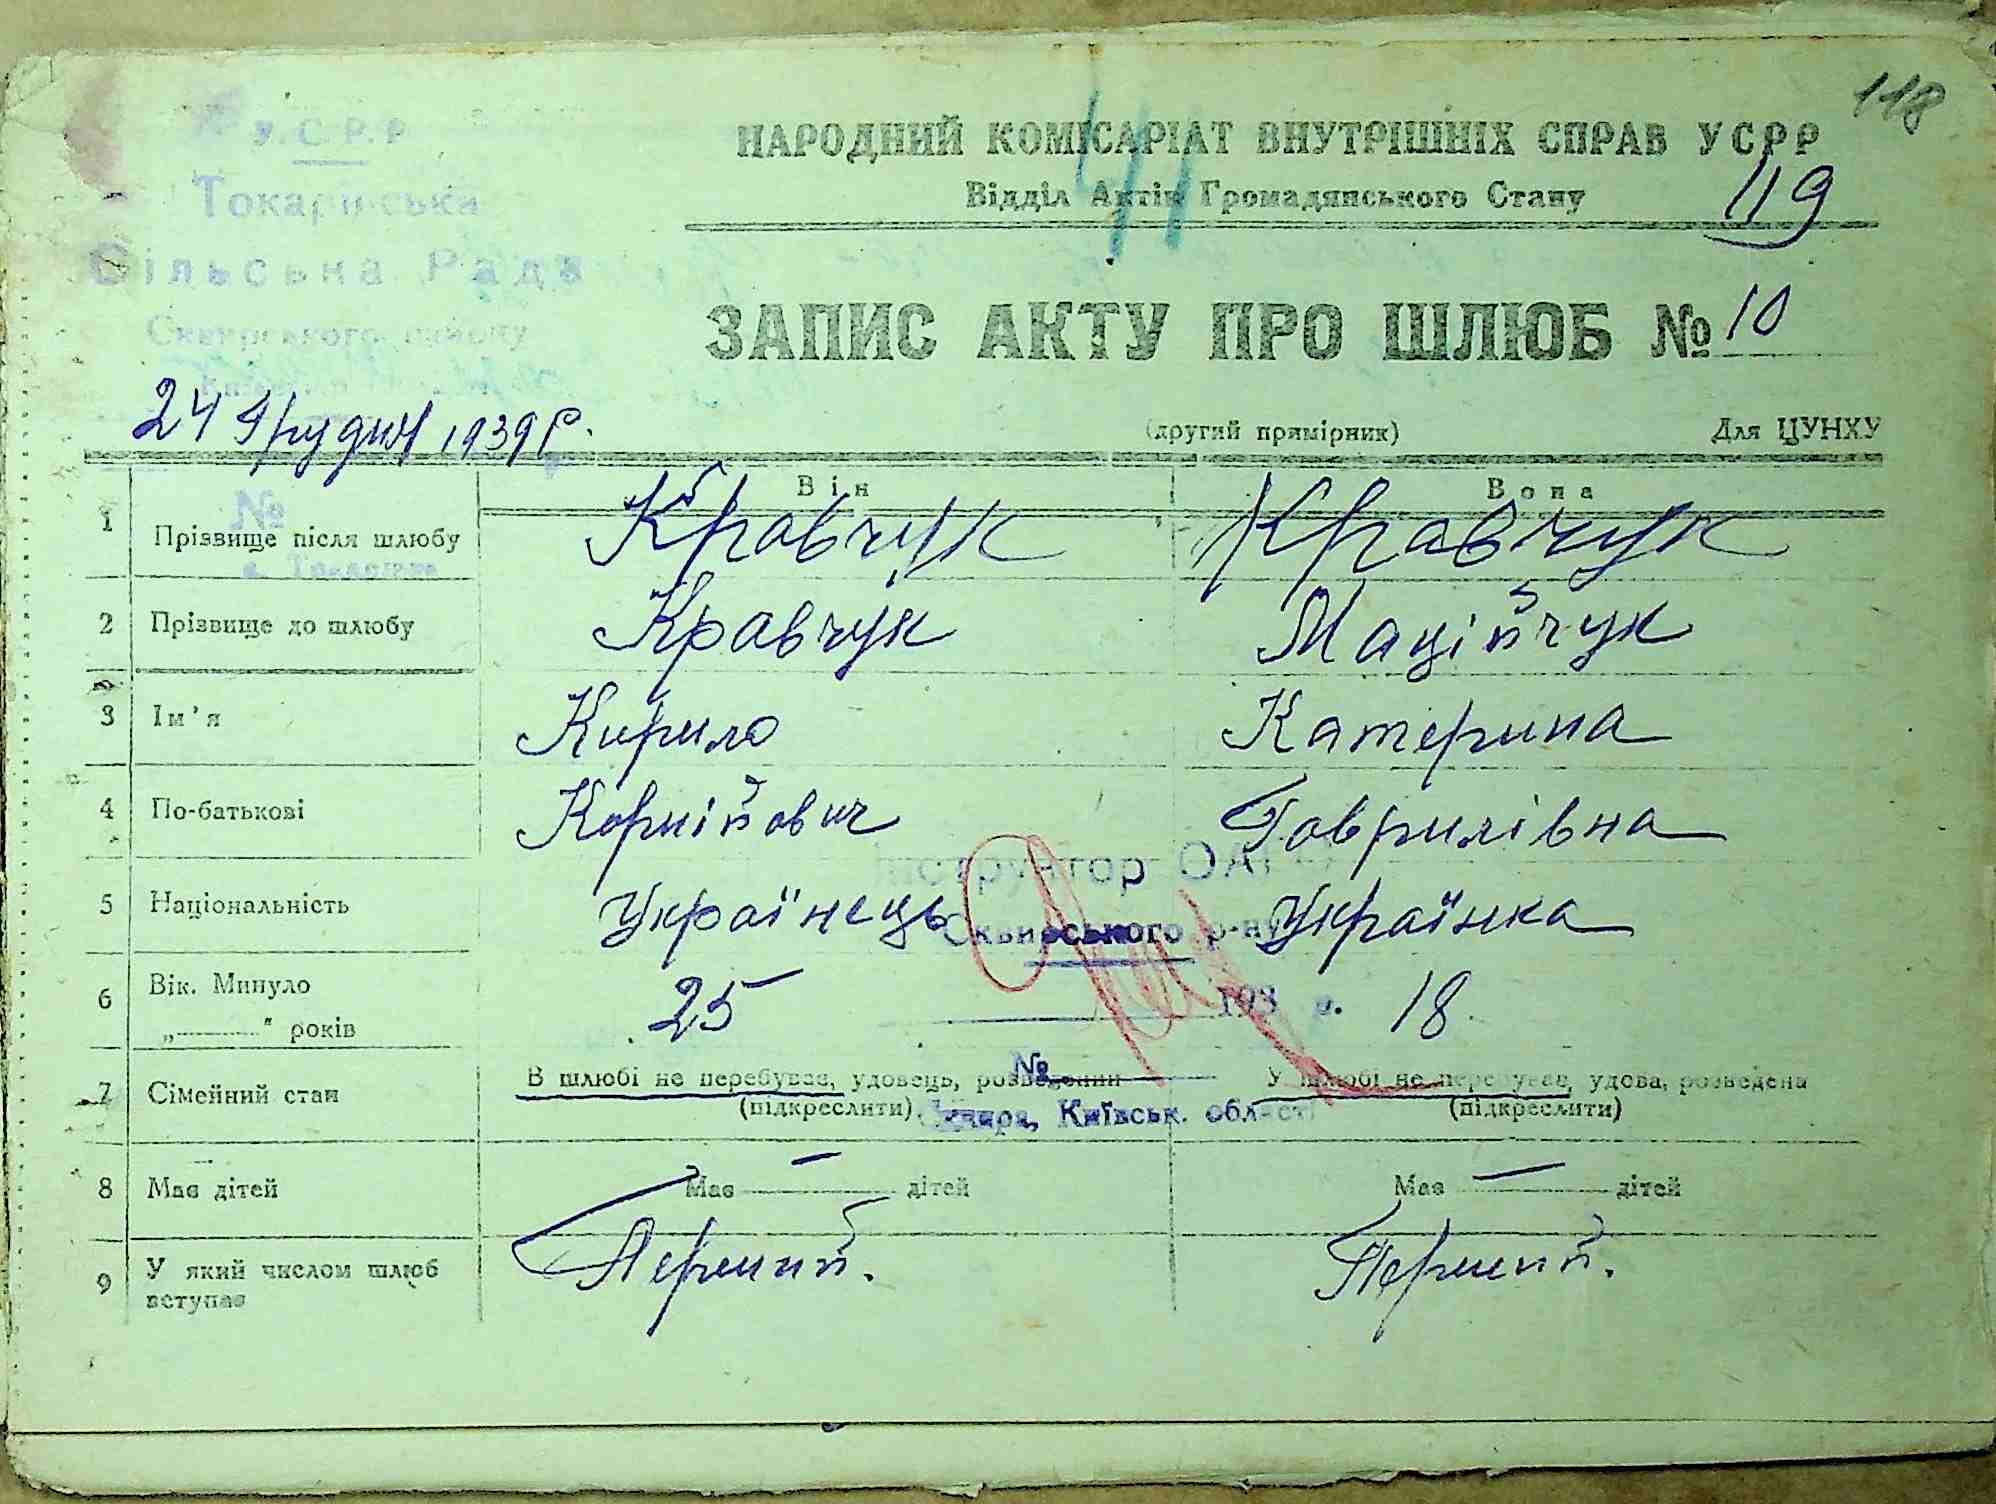 118
У.С.Р.Р
Токарівська
Сільська Рада
Сквирського району
41
НАРОДНИЙ КОМІСАРІАТ ВНУТРІШНІХ СПРАВ УСРР
Відділ Актів Громадянського Стану
119
ЗАПИС АКТУ ПРО ШЛЮБ № 10
24 Грудня 1939 р.
(другий примірник) Для ЦУНХУ
Він Вона
№
1 Прізвище після шлюбу Кравчук Кравчук
с. Токарівка
2 Прізвище до шлюбу Кравчук Маційчук
3 Ім'я Кирило Катерина
4 По-батькові Корнійович Гаврилівна
Інструктор ОАГС
5 Національність Українець Українка
Сквирського р-ну
6 Вік. Минуло „ " років 25 18
193 р.
№
7 Сімейний стан В шлюбі не перебуває, удовець, розведений У шлюбі не перебуває, удова, розведена
(підкреслити) (підкреслити)
Сквира, Київськ. області
8 Має дітей Має — дітей Має — дітей
9 У який числом шлюб вступає Перший. Перший.